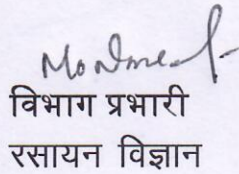 विभाग प्रभारी
रसायन विज्ञान